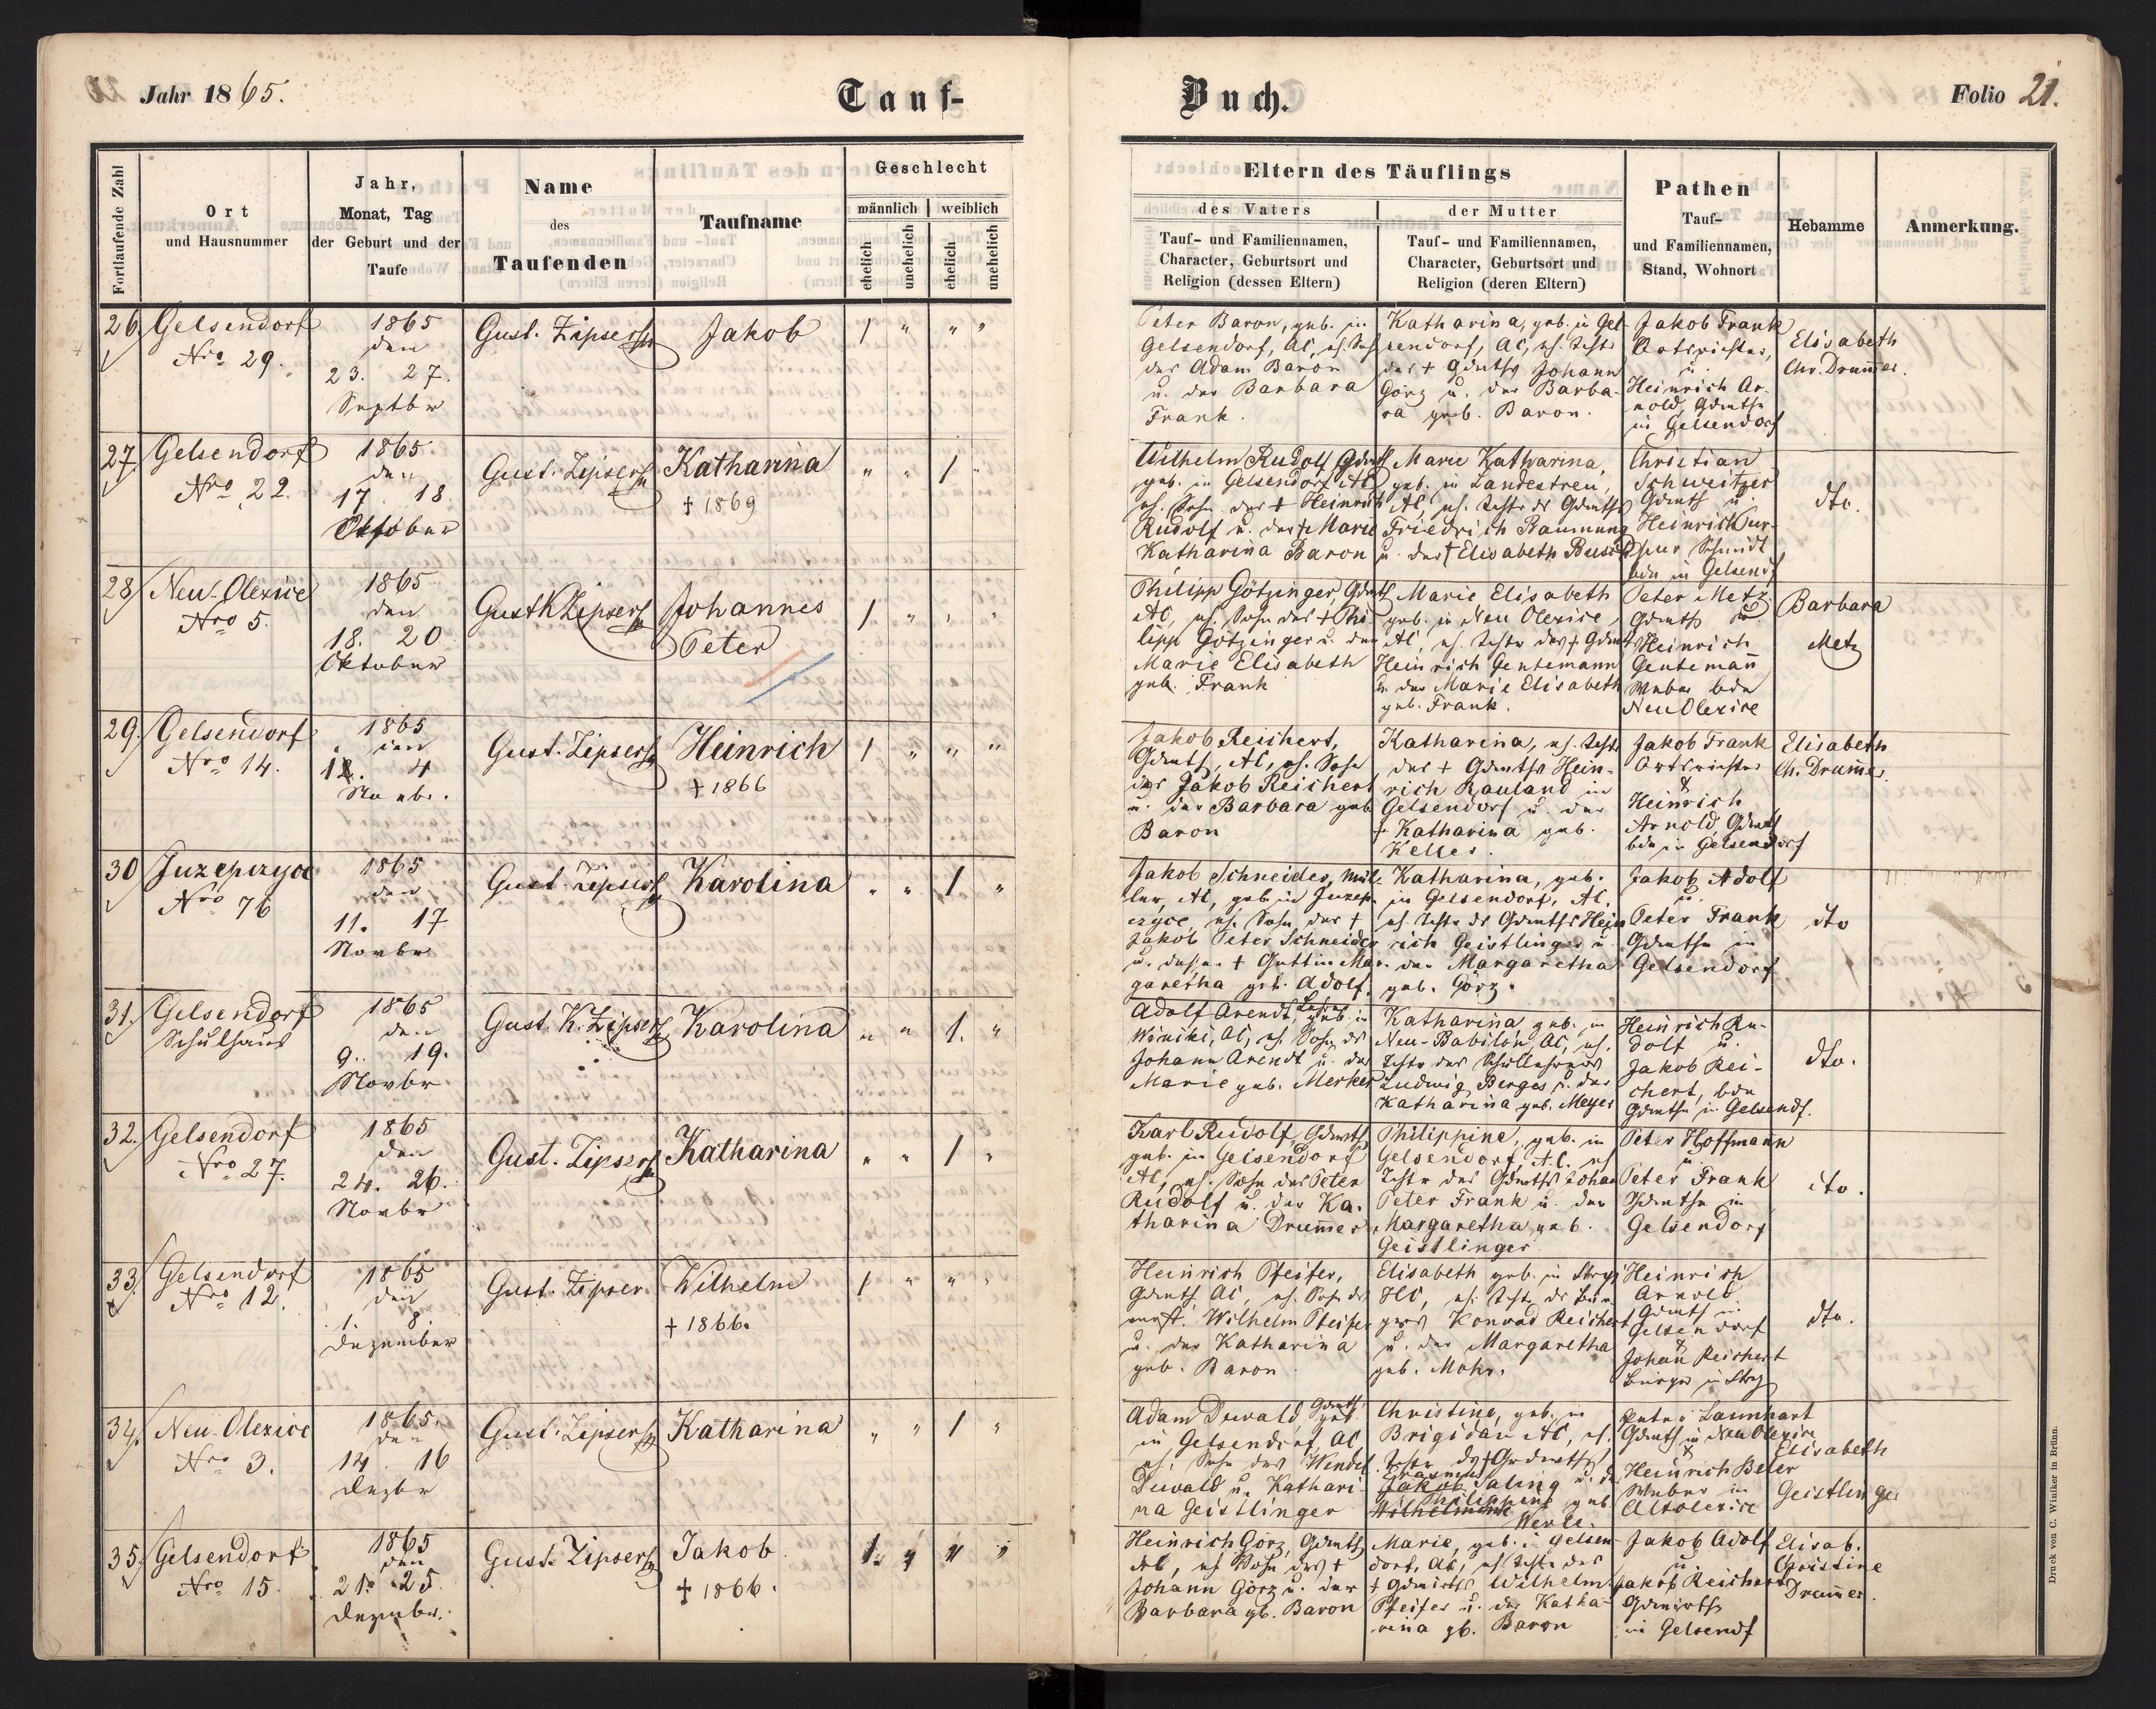 Jahr 1865.
Tauf-
Buch.
Folio 21.
Fortlaufende Zahl
Ort
und Hausnummer
Jahr,
Monat, Tag
der Geburt und der
Taufe
Name
des
Taufenden
Taufname
Geschlecht
männlich
weiblich
ehelich
unehelich
ehelich
unehelich
Eltern des Täuflings
des Vaters
Tauf- und Familiennamen,
Character, Geburtsort und
Religion (dessen Eltern)
der Mutter
Tauf- und Familiennamen,
Character, Geburtsort und
Religion (deren Eltern)
Pathen
Tauf-
und Familiennamen,
Stand, Wohnort
Hebamme
Anmerkung.
26
Gelsendorf
Nro 29.
1865
den
23. 27.
Septbr
Gust. Zipser
Jakob
1 " " "
Peter Baron, geb. in
Gelsendorf, AC, eh. Sohn
des Adam Baron
u. der Barbara
Frank.
Katharina, geb. in Gel-
sendorf, AC, eh. Tochtr
des + Gdwths Johann
Görz u. der Barba-
ra geb. Baron.
Jakob Frank
Ortsrichter,
u.
Heinrich Ar-
nold, Gdwthe
in Gelsendorf
Elisabeth
Chr. Drum̅er.
27
Gelsendorf
Nro 22.
1865.
den
17. 18.
Oktober
Gust. Zipser
Katharina
+ 1869
" " 1 "
Wilhelm Rudolf, Gdwth
geb. in Gelsendorf AC
eh. Sohn des + Heinrich
Rudolf u. der + Marie
Katharina Baron
Marie Katharina,
geb. in Landestreu,
AC, eh. Tochtr ds Gdwths
Friedrich Baumung
u. der + Elisabeth
Christian
Schweitzer
Gdwth u.
Schmidt
bde in Gelsend
dto.
28
Neu-Olexice
Nro 5.
1865
den
18. 20.
Oktober
Gust K Zipser
Johannes
Peter
1 " " "
Philipp Götzinger, Gdwth
AC, eh. Sohn des + Phi-
lipp Götzinger u. der
Marie Elisabeth
geb. Frank
Marie Elisabeth
geb. in Neu Olexice,
AC, eh. Tochtr des + Gdwths
Heinrich Gentemann
u. der Marie Elisabeth
geb. Frank.
Peter Metz
Gdwth u
Heinrich
Genteman̅
Weber bde
Neu Olexice
Barbara
Metz
29.
Gelsendorf
Nro 14.
1865
den
12. 4
Novbr.
Gust. Zipser
Heinrich
+ 1866
1 " " "
Jakob Reichert,
Gdwth, AC, eh. Sohn
des Jakob Reichert
u. der Barbara geb
Baron
Katharina, eh. Tochtr
des + Gdwths Hein-
rich Rauland in
Gelsendorf u. der
+ Katharina geb.
Keller.
Jakob Frank
Ortsrichter
&
Heinrich
Arnold, Gdwth
bde in Gelsendorf
Elisabeth
Ch. Drum̅er.
30
Juzepczyce
Nro 76
1865
den
11. 17
Novbr
Gust. Zipser
Karolina
" " 1 "
Jakob Schneider, Mül-
ler, AC, geb in Juzep-
czyce, eh. Sohn des +
Jakob Peter Schneider
u. dessen + Gattin Mar-
garetha geb. Adolf.
Katharina, geb.
in Gelsendorf, AC,
eh Tochtr ds Gdwths Hein
rich Geistlinger u.
der Margaretha
geb. Görz.
Jakob Adolf
u.
Peter Frank
Gdwthe in
Gelsendorf
dto
31.
Gelsendorf
Schulhaus
1865
den
9. 19.
Novbr
Gust. K. Zipser
Karolina
" " 1. "
Adolf Arendt, Lehrer geb. in
Winniki, AC, eh. Sohn ds
Johann Arendt u. der
Marie geb. Merker
Katharina geb. in
Neu-Babilon, AC, eh.
Tochtr des Schullehrers
Ludwig Berges u. der
Katharina geb. Meyer
Heinrich Ru-
dolf u.
Jakob Rei-
chert, bde
Gdwthe in Gelsendf.
dto.
32.
Gelsendorf
Nro 27.
1865
den
24. 26.
Novbr
Gust. Zipser
Katharina
" " 1 "
Karl Rudolf, Gdwth
geb. in Gelsendorf
AC, eh. Sohn des Peter
Rudolf u. der Ka-
tharina Drum̅er
Philippine, geb. in
Gelsendorf, A.C. eh
Tochtr des Gdwths Johan
Peter Frank u. der
Margaretha, geb.
Geistlinger
Peter Hoffman̅
u.
Peter Frank
Gdwthe in
Gelsendorf
dto.
33.
Gelsendorf
Nro 12.
1865
den
1. 8.
Dezember
Gust. Zipser
Wilhelm
+ 1866.
1 " " "
Heinrich Pfeifer,
Gdwth AC, eh. Sohn ds
Wilhelm Pfeifer
u. der Katharina
geb. Baron
Elisabeth geb. in Stryj
HC, eh. Tochtr ds Bür-
gers Konrad Reichert
u. der Margaretha
geb. Mohr.
Heinrich
Arnold
Gdwth in
Gelsendorf
&
Johan̅ Reichert
Bürger in Stryj
dto.
34.
Neu-Olexice
Nro 3.
1865.
den
14. 16
Dezbr
Gust. Zipser
Katharina
" " 1 "
Adam Duwald, Gdwth geb.
in Gelsendorf, AC
eh. Sohn des Wendel
Duwald u. Kathari-
na Geistlinger
Christine, geb. in
Brigidau AC, eh.
Tochtr ds + Grdwths
Jakob Saling u. d.
Philippine
Wilhelmine geb.
Werle.
Peter Launhart
Gdwth in Neu Olexice
&
Heinrich Beler
Weber in
Altolexice
Elisabeth
Geistlinger
35.
Gelsendorf
Nro 15.
1865
den
21. 25.
Dezember.
Gust. Zipser
Jakob
+ 1866.
1. " " "
Heinrich Görz, Gdwth
AC, eh Sohn des +
Johann Görz u. der
Barbara gb. Baron
Marie, geb. i. Gelsen-
dorf, AC, eh Tochtr des
+ Gdwirths Wilhelm
Pfeifer u. der Katha-
rina gb. Baron
Jakob Adolf
u.
Jakob Reichert
Gdewirthe
in Gelsendf
Elisab.
Christine
Drum̅er.
Druck von C. Winiker in Brünn.